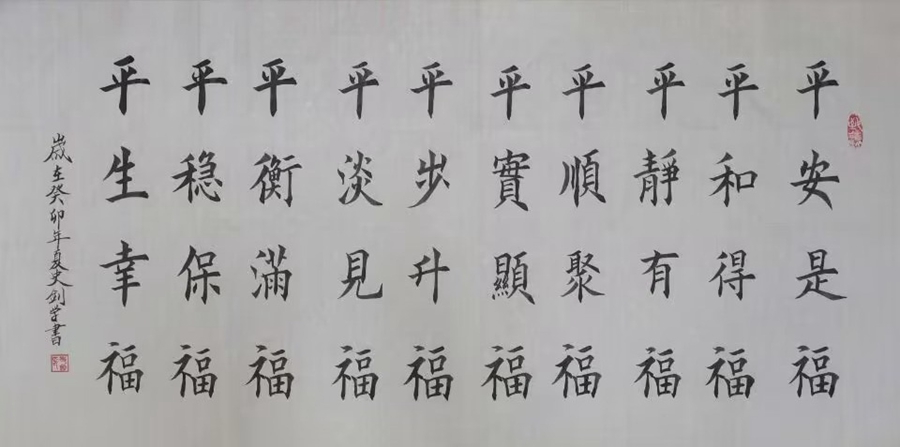 平安是福
平和得福
平靜有福
平順聚福
平實顯福
平步升福
平淡見福
平衡滿福
平穏保福
平生幸福
歲在癸卯年夏文劍學書